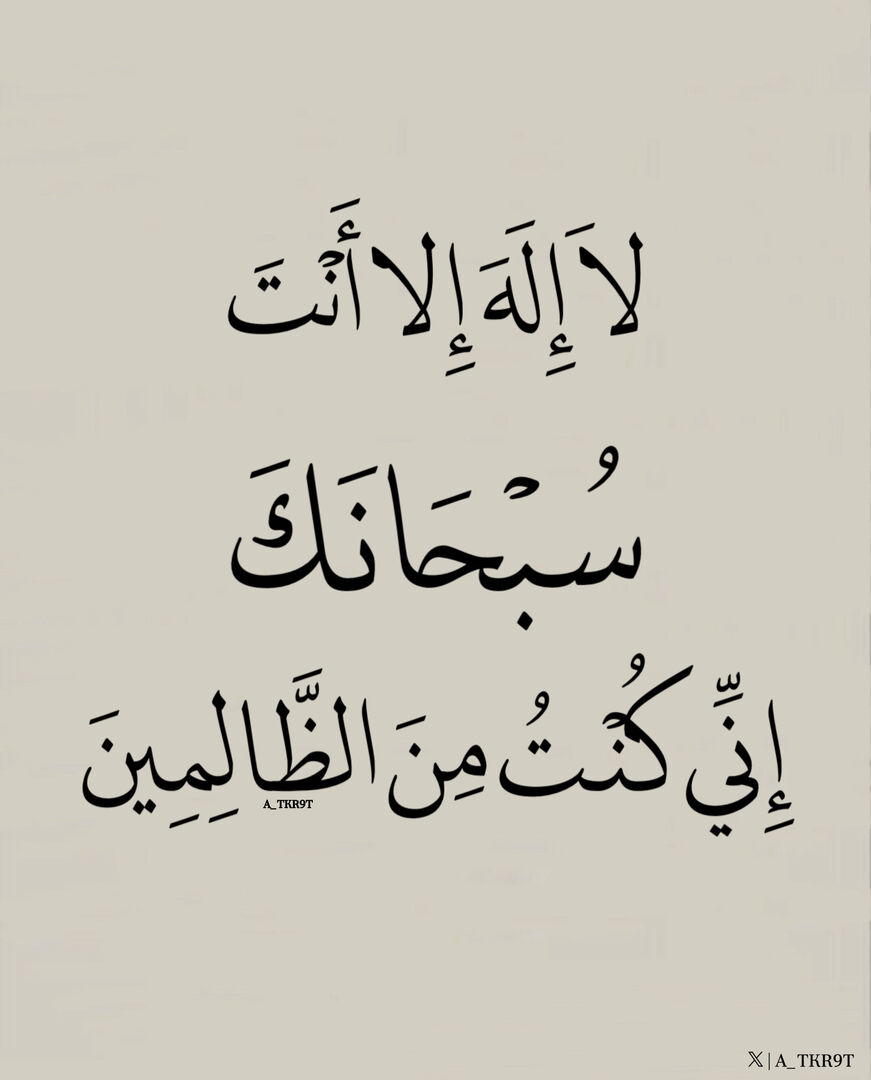 لَا إِلَهَ إِلا أَنْتَ
سُبْحَانَكَ
إِنِّي كُنْتُ مِنَ الظَّالِمِينَ
A_TKR9T
𝕏 | A_TKR9T